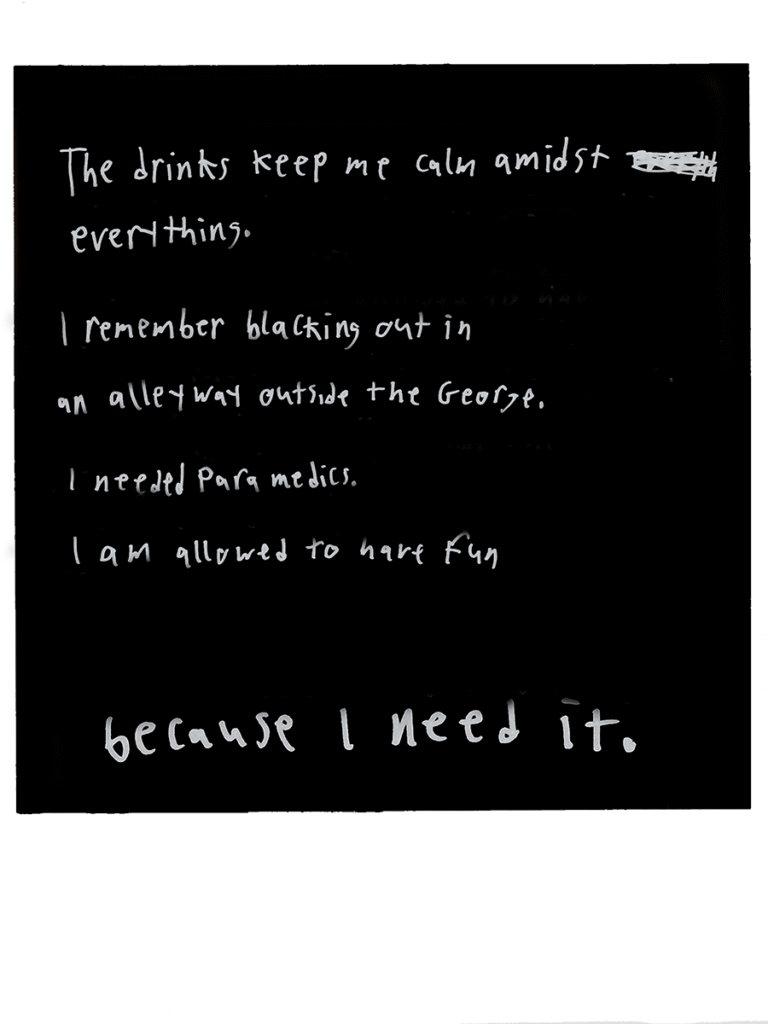 The drinks keep me calm amidst
everything.
I remember blacking out in
an alleyway outside the George.
I needed Paramedics.
I am allowed to have fun
because I need it.